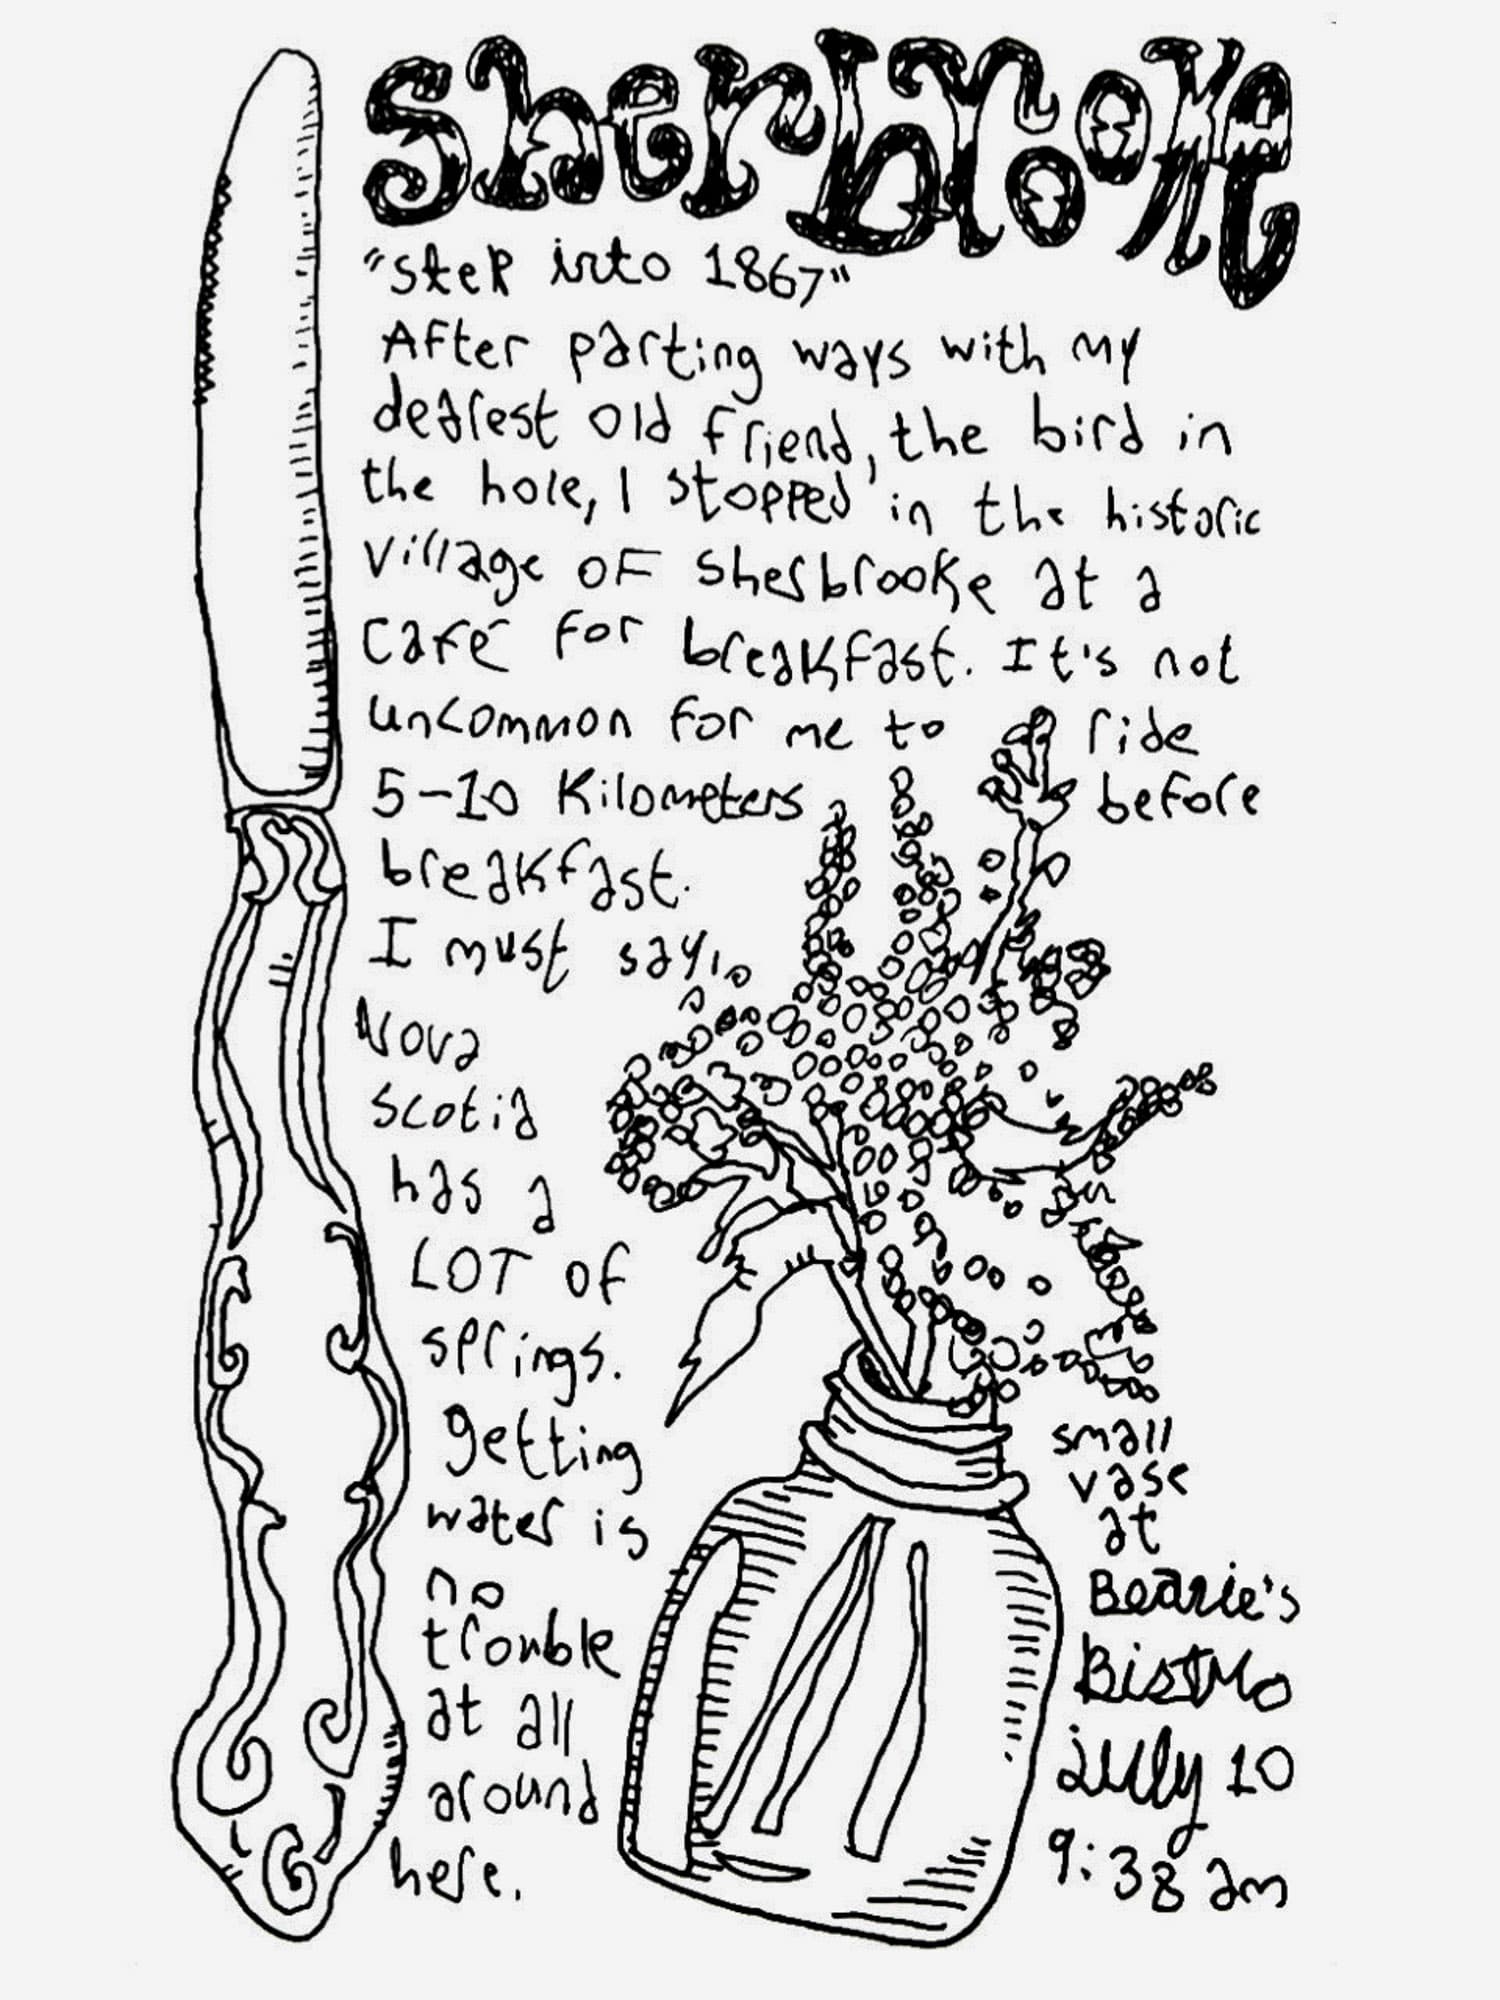 Sherbrooke
"step into 1867"
After parting ways with my
dearest old friend, the bird in
the hole, I stopped in the historic
village of Sherbrooke at a
café for breakfast. It's not
uncommon for me to ride
5-10 kilometers before
breakfast.
I must say,
Nova
Scotia
has a
LOT of
springs.
getting
water is
no
trouble
at all
around
here.
small
vase
at
Bearie's
Bistro
july 10
9:38 am